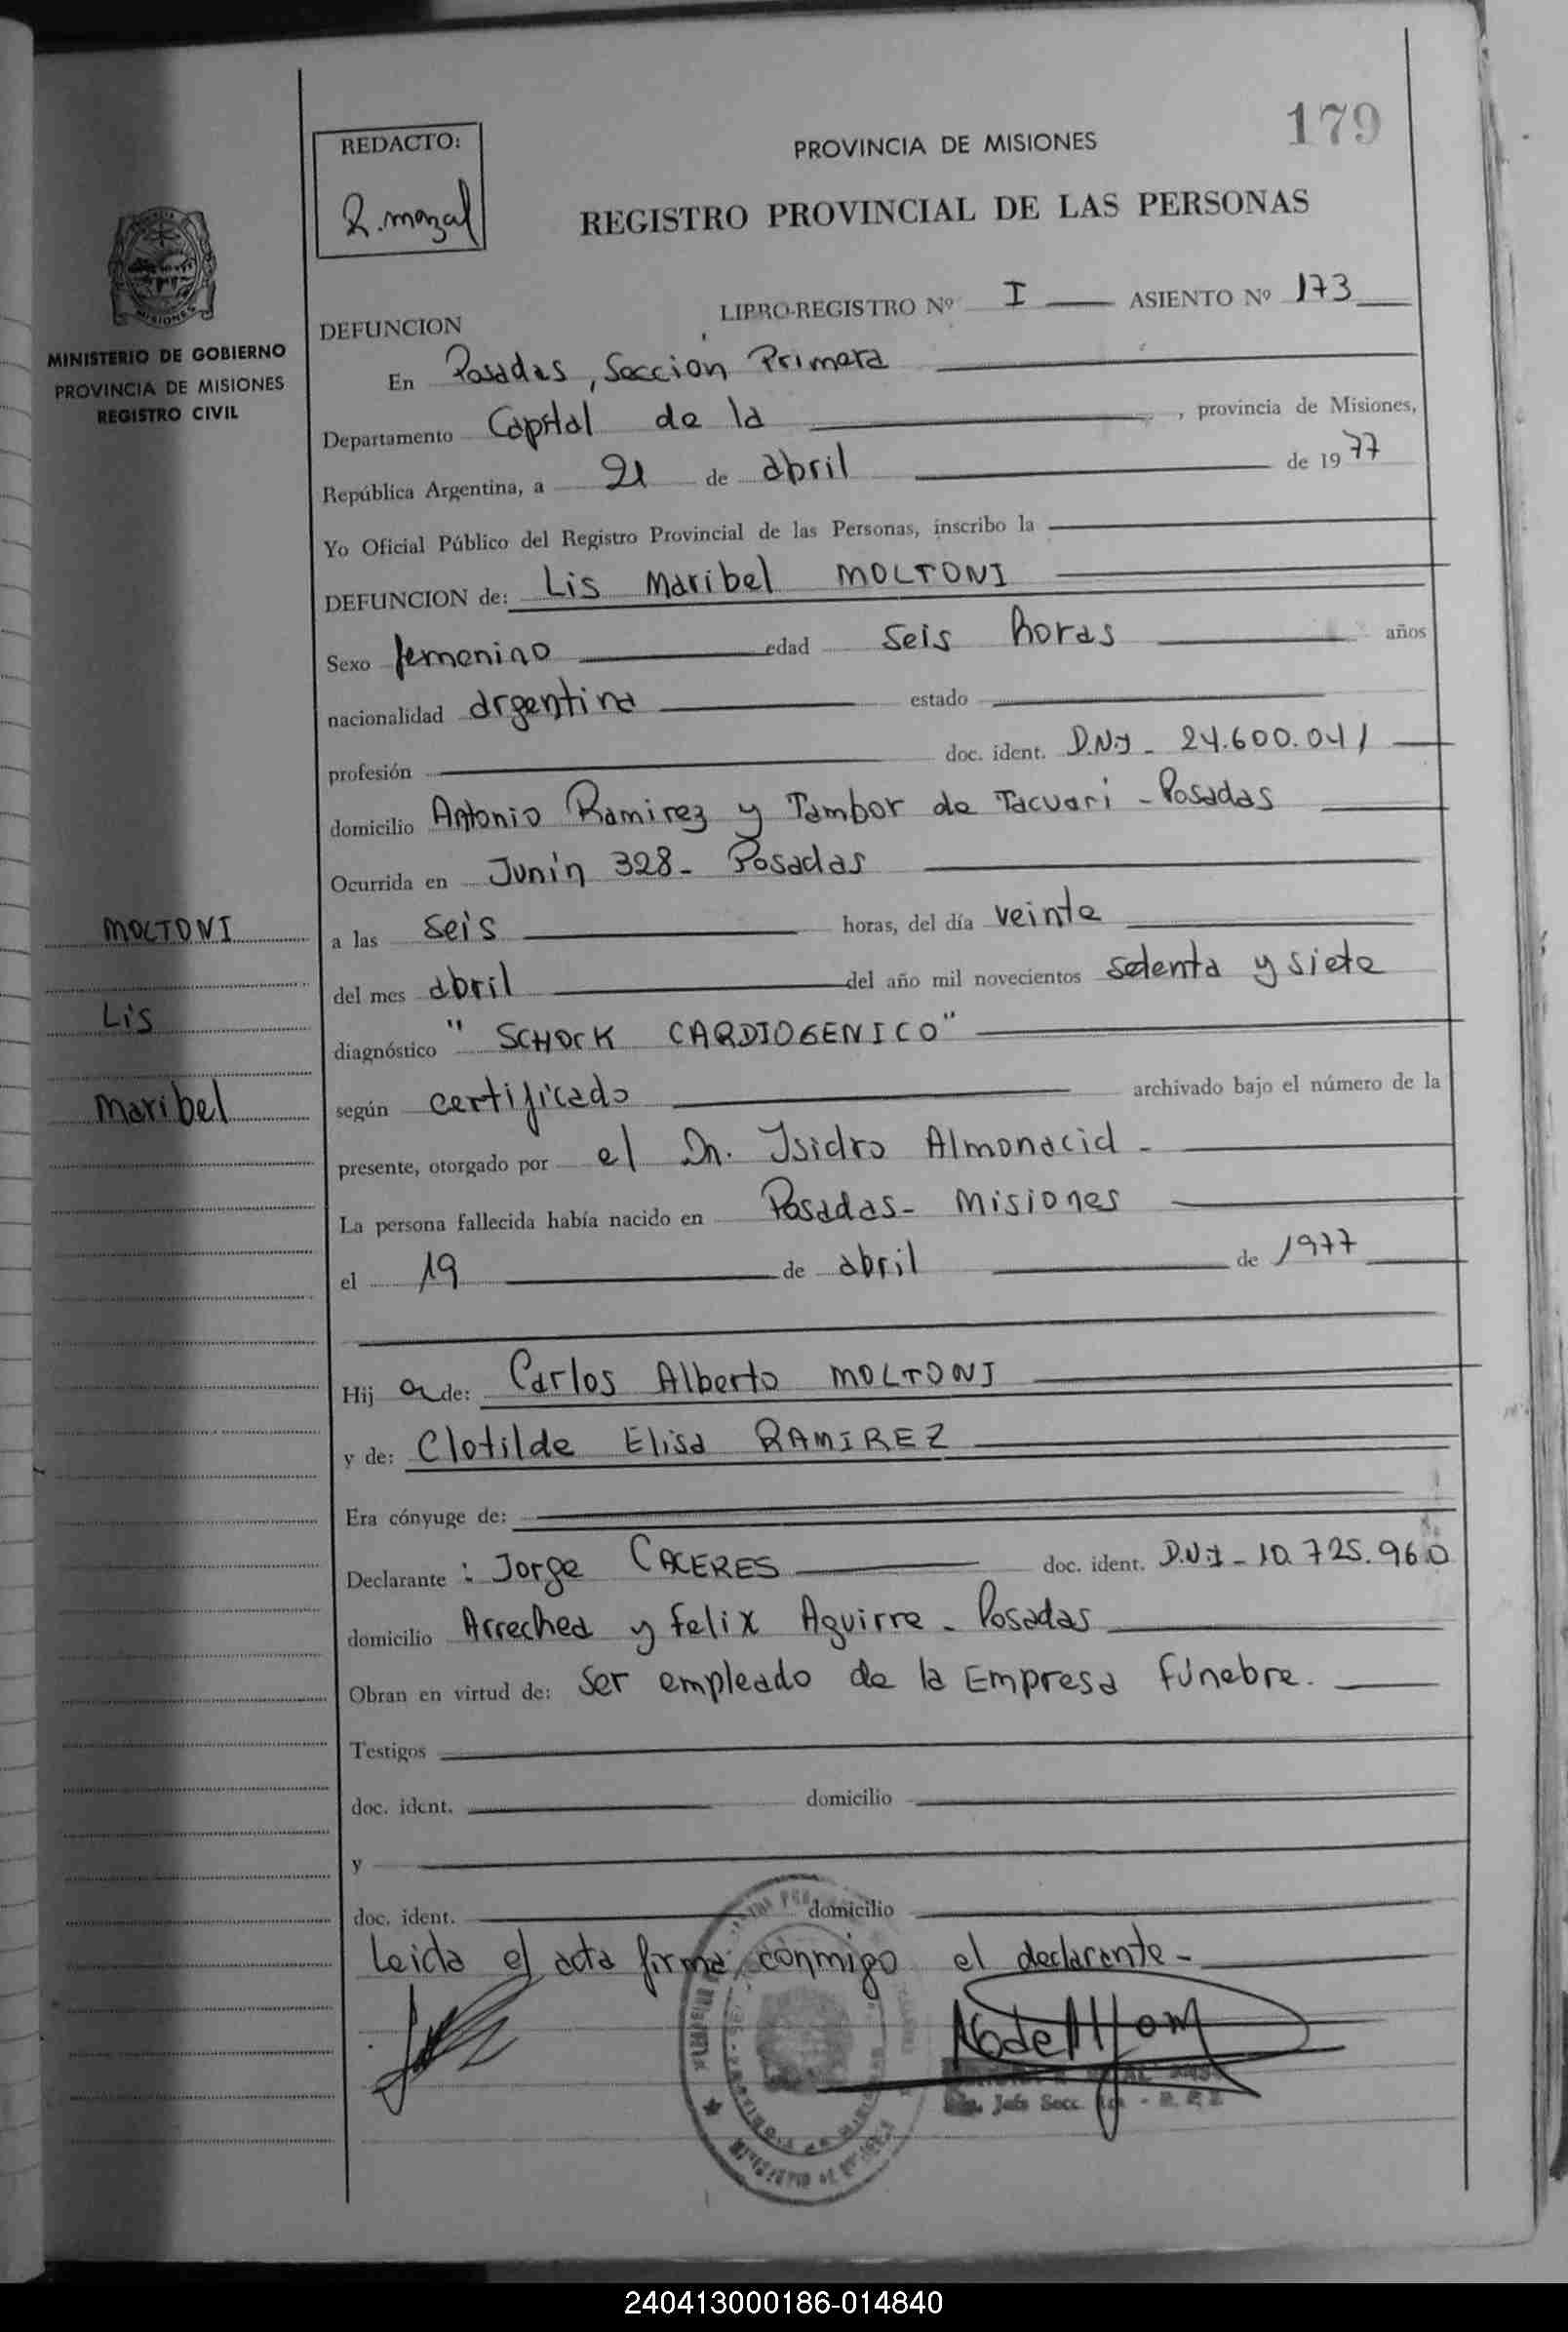 179
REDACTO:
R. mazal
PROVINCIA DE MISIONES
REGISTRO PROVINCIAL DE LAS PERSONAS
MISIONES
MINISTERIO DE GOBIERNO
PROVINCIA DE MISIONES
REGISTRO CIVIL
LIBRO-REGISTRO Nº I ASIENTO Nº 173
DEFUNCION
En Posadas, Sección Primera
Departamento Capital de la , provincia de Misiones,
República Argentina, a 21 de abril de 1977
Yo Oficial Público del Registro Provincial de las Personas, inscribo la
DEFUNCION de: Lis Maribel MOLTONI
Sexo femenino edad seis horas años
nacionalidad argentina estado
profesión doc. ident. D.N.I - 24.600.041
domicilio Antonio Ramirez y Tambor de Tacuari - Posadas
Ocurrida en Junín 328 - Posadas
a las seis horas, del día veinte
del mes abril del año mil novecientos setenta y siete
diagnóstico "SCHOCK CARDIOGENICO"
según certificado archivado bajo el número de la
presente, otorgado por el Dr. Isidro Almonacid -
La persona fallecida había nacido en Posadas - Misiones
el 19 de abril de 1977
Hija de: Carlos Alberto MOLTONI
y de: Clotilde Elisa RAMIREZ
Era cónyuge de:
Declarante : Jorge CACERES doc. ident. D.N.I - 10.725.960
domicilio Arrechea y Felix Aguirre - Posadas
Obran en virtud de: Ser empleado de la Empresa Fúnebre.
Testigos
doc. ident. domicilio
y
doc. ident. domicilio
Leida el acta firma conmigo el declarante -
MOLTONI
Lis
Maribel
Jefe Secc.
240413000186-014840